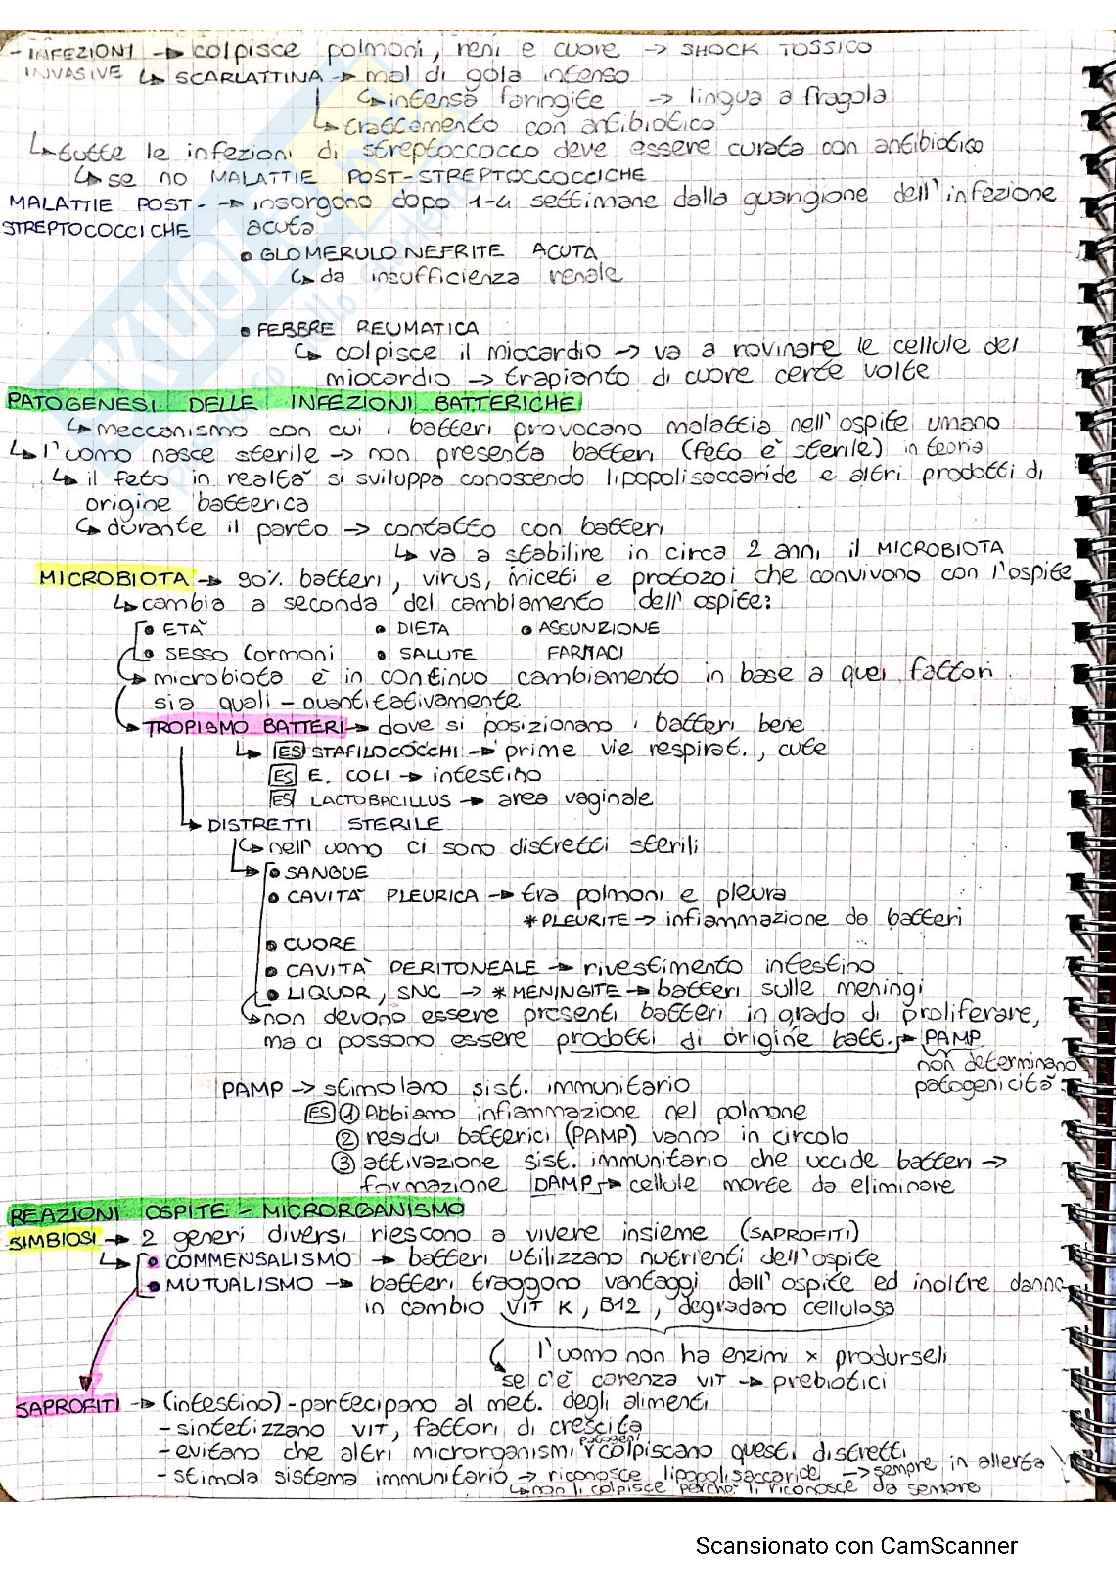 - INFEZIONI → colpisce polmoni, reni e cuore → SHOCK TOSSICO
INVASIVE ↳ SCARLATTINA → mal di gola intenso
↳ intensa faringite → lingua a fragola
↳ trattamento con antibiotico
↳ tutte le infezioni di streptoccocco deve essere curata con antibiotico
↳ se no MALATTIE POST-STREPTOCCOCCICHE
MALATTIE POST- → insorgono dopo 1-4 settimane dalla guangione dell'infezione
STREPTOCOCCICHE acuta
• GLOMERULONEFRITE ACUTA
↳ da insufficienza renale
• FEBBRE REUMATICA
↳ colpisce il miocardio → va a rovinare le cellule del
miocardio → trapianto di cuore certe volte
PATOGENESI DELLE INFEZIONI BATTERICHE
↳ meccanismo con cui i batteri provocano malattia nell'ospite umano
↳ l'uomo nasce sterile → non presenta batteri (feto è sterile) in teoria
↳ il feto in realtà si sviluppa conoscendo lipopolisaccaride e altri prodotti di
origine batterica
↳ durante il parto → contatto con batteri
↳ va a stabilire in circa 2 anni il MICROBIOTA
MICROBIOTA → 90% batteri, virus, miceti e protozoi che convivono con l'ospite
↳ cambia a seconda del cambiamento dell'ospite:
• ETÀ • DIETA • ASSUNZIONE
• SESSO (ormoni • SALUTE FARMACI
↳ microbiota è in continuo cambiamento in base a quei fattori
sia quali-quantitativamente
↳ TROPISMO BATTERI → dove si posizionano i batteri bene
↳ ES STAFILOCOCCHI → prime vie respirat., cute
ES E. COLI → intestino
ES LACTOBACILLUS → area vaginale
↳ DISTRETTI STERILE
↳ nell'uomo ci sono distretti sterili
↳ • SANGUE
• CAVITÀ PLEURICA → tra polmoni e pleura
* PLEURITE → infiammazione da batteri
• CUORE
• CAVITÀ PERITONEALE → rivestimento intestino
• LIQUOR, SNC → * MENINGITE → batteri sulle meningi
↳ non devono essere presenti batteri in grado di proliferare,
ma ci possono essere prodotti di origine batt. → PAMP
non determinano
patogenicità
PAMP → stimolano sist. immunitario
ES ① Abbiamo infiammazione nel polmone
② residui batterici (PAMP) vanno in circolo
③ attivazione sist. immunitario che uccide batteri →
formazione DAMP → cellule morte da eliminare
REAZIONI OSPITE - MICRORGANISMO
SIMBIOSI → 2 generi diversi riescono a vivere insieme (SAPROFITI)
↳ • COMMENSALISMO → batteri utilizzano nutrienti dell'ospite
• MUTUALISMO → batteri traggono vantaggi dall'ospite ed inoltre danno
in cambio VIT K, B12, degradano cellulosa
l'uomo non ha enzimi x produrseli
se c'è carenza VIT → prebiotici
SAPROFITI → (intestino) - partecipano al met. degli alimenti
- sintetizzano VIT, fattori di crescita
- evitano che altri microrganismi patogeni colpiscano questi distretti
- stimola sistema immunitario → riconosce lipopolisaccaride → sempre in allerta
↳ non li colpisce perché li riconosce da sempre
Scansionato con CamScanner